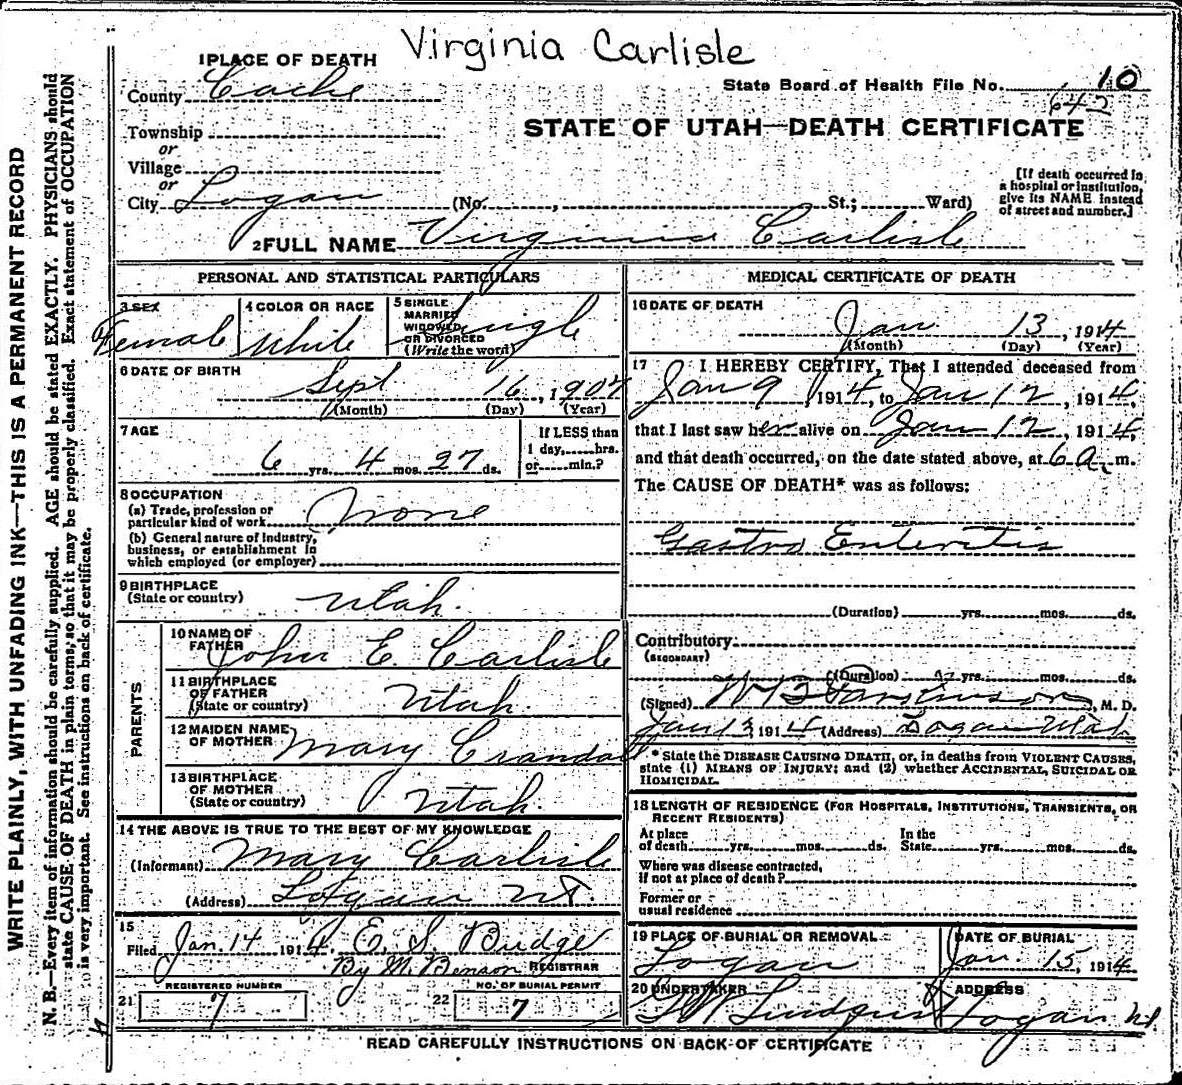 Virginia Carlisle
1 PLACE OF DEATH
County Cache
State Board of Health File No. 10
642
STATE OF UTAH—DEATH CERTIFICATE
Township
or
Village
or
City Logan (No. , St.; Ward)
[If death occurred in a hospital or institution, give its NAME instead of street and number.]
2 FULL NAME Virginia Carlisle
PERSONAL AND STATISTICAL PARTICULARS
3 SEX
Female
4 COLOR OR RACE
White
5 SINGLE MARRIED WIDOWED OR DIVORCED (Write the word)
Single
6 DATE OF BIRTH
Sept 16, 1907
(Month) (Day) (Year)
7 AGE
6 yrs. 4 mos. 27 ds.
If LESS than 1 day, hrs. or min.?
8 OCCUPATION
(a) Trade, profession or particular kind of work None
(b) General nature of industry, business, or establishment in which employed (or employer)
9 BIRTHPLACE (State or country) Utah.
PARENTS
10 NAME OF FATHER John E. Carlisle
11 BIRTHPLACE OF FATHER (State or country) Utah.
12 MAIDEN NAME OF MOTHER Mary Crandall
13 BIRTHPLACE OF MOTHER (State or country) Utah.
14 THE ABOVE IS TRUE TO THE BEST OF MY KNOWLEDGE
(Informant) Mary Carlisle
(Address) Logan UT.
15
Filed Jan. 14 1914. E. S. Budge
By M. Benson REGISTRAR
REGISTERED NUMBER
21 7
NO. OF BURIAL PERMIT
22 7
MEDICAL CERTIFICATE OF DEATH
16 DATE OF DEATH
Jan. 13, 1914
(Month) (Day) (Year)
17 I HEREBY CERTIFY, That I attended deceased from
Jan 9, 1914, to Jan 12, 1914,
that I last saw her alive on Jan 12, 1914,
and that death occurred, on the date stated above, at 6 a. m.
The CAUSE OF DEATH* was as follows:
Gastro Enteritis
(Duration) yrs. mos. ds.
Contributory
(SECONDARY)
(Duration) yrs. mos. ds.
(Signed) W B Parkinson, M. D.
Jan 13, 1914 (Address) Logan Utah
* State the DISEASE CAUSING DEATH, or, in deaths from VIOLENT CAUSES,
state (1) MEANS OF INJURY; and (2) whether ACCIDENTAL, SUICIDAL OR
HOMICIDAL.
18 LENGTH OF RESIDENCE (FOR HOSPITALS, INSTITUTIONS, TRANSIENTS, OR
RECENT RESIDENTS)
At place of death yrs. mos. ds. In the State yrs. mos. ds.
Where was disease contracted,
if not at place of death?
Former or
usual residence
19 PLACE OF BURIAL OR REMOVAL
Logan
DATE OF BURIAL
Jan. 15, 1914
20 UNDERTAKER
Lindquist
ADDRESS
Logan Ut.
READ CAREFULLY INSTRUCTIONS ON BACK OF CERTIFICATE
WRITE PLAINLY, WITH UNFADING INK—THIS IS A PERMANENT RECORD
N. B.—Every item of information should be carefully supplied. AGE should be stated EXACTLY. PHYSICIANS should
state CAUSE OF DEATH in plain terms, so that it may be properly classified. Exact statement of OCCUPATION
is very important. See instructions on back of certificate.